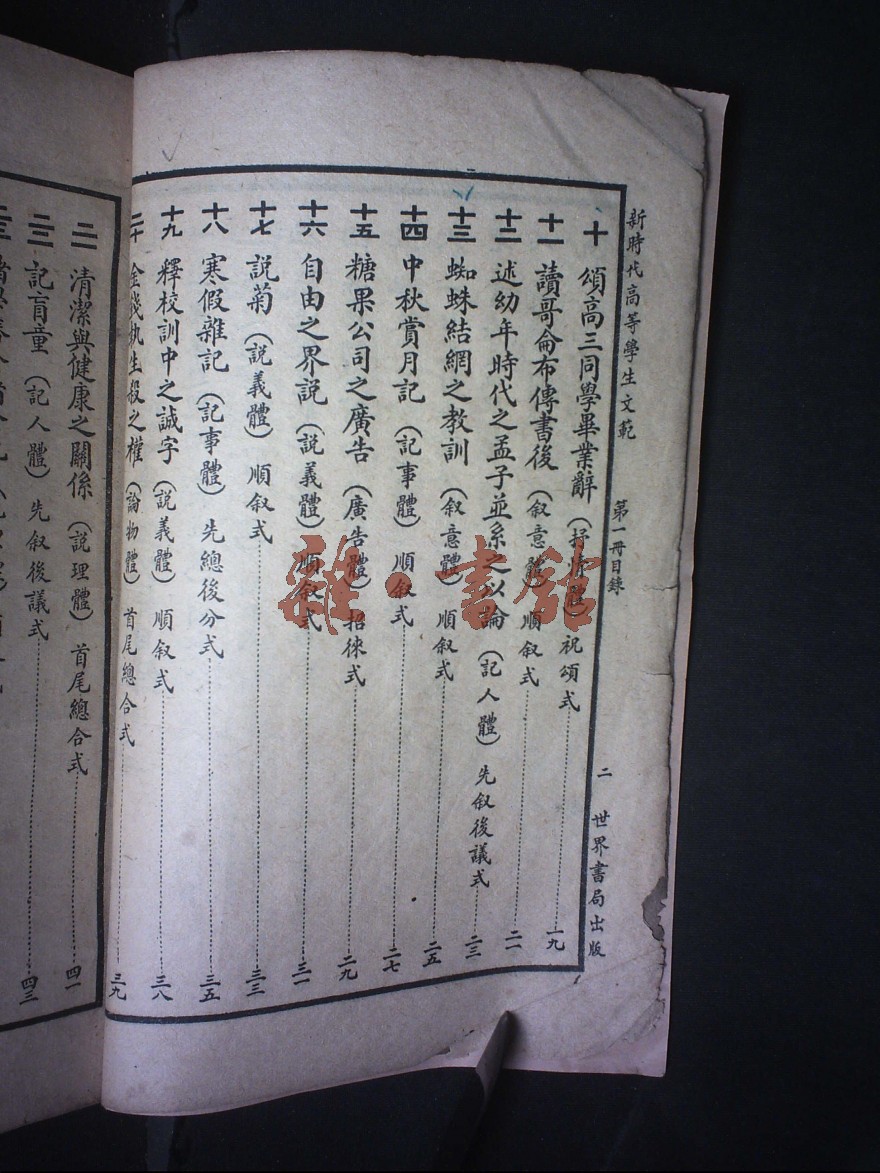 新時代高等學生文範　第一冊目錄　二　世界書局出版
十　頌高三同學畢業辭（抒情體）祝頌式……一九
十一　讀哥侖布傳書後（叙意體）順叙式……二一
十二　述幼年時代之孟子並系之以論（記人體）先叙後議式……二三
十三　蜘蛛結網之教訓（叙意體）順叙式……二五
十四　中秋賞月記（記事體）順叙式……二七
十五　糖果公司之廣告（廣告體）招徠式……二九
十六　自由之界說（說義體）順叙式……三一
十七　說菊（說義體）順叙式……三三
十八　寒假雜記（記事體）先總後分式……三五
十九　釋校訓中之誠字（說義體）順叙式……三八
二十　金錢執生殺之權（論物體）首尾總合式……三九
二一　清潔與健康之關係（說理體）首尾總合式……四一
二二　記盲童（記人體）先叙後議式……四三
二三
雜·書館